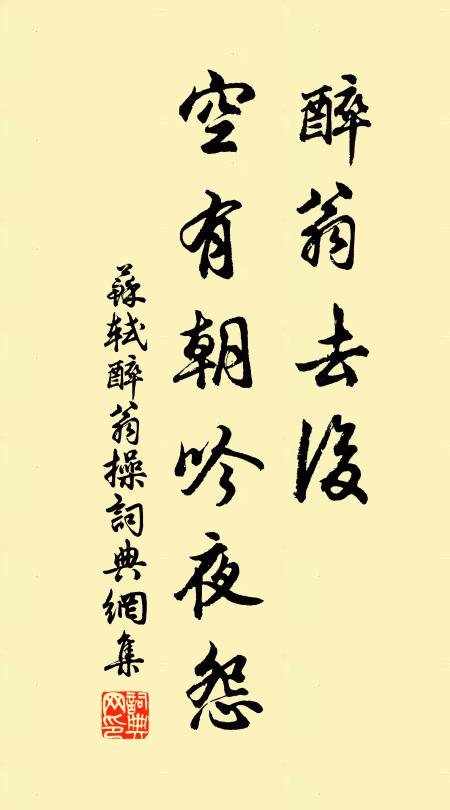 醉翁去後
空有朝吟夜怨
蘇軾醉翁操詞典網集
詞典網印